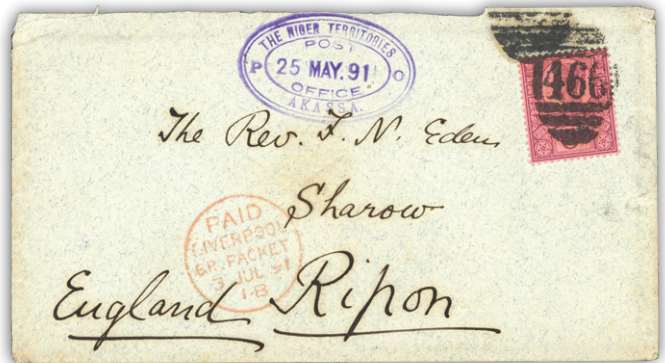 THE NIGER TERRITORIES
POST
P 25 MAY. 91 O
OFFICE
AKASSA.
466
The Rev. F. N. Eden
Sharow
PAID
LIVERPOOL
BR. PACKET
3 JUL 91
1-B
England Ripon